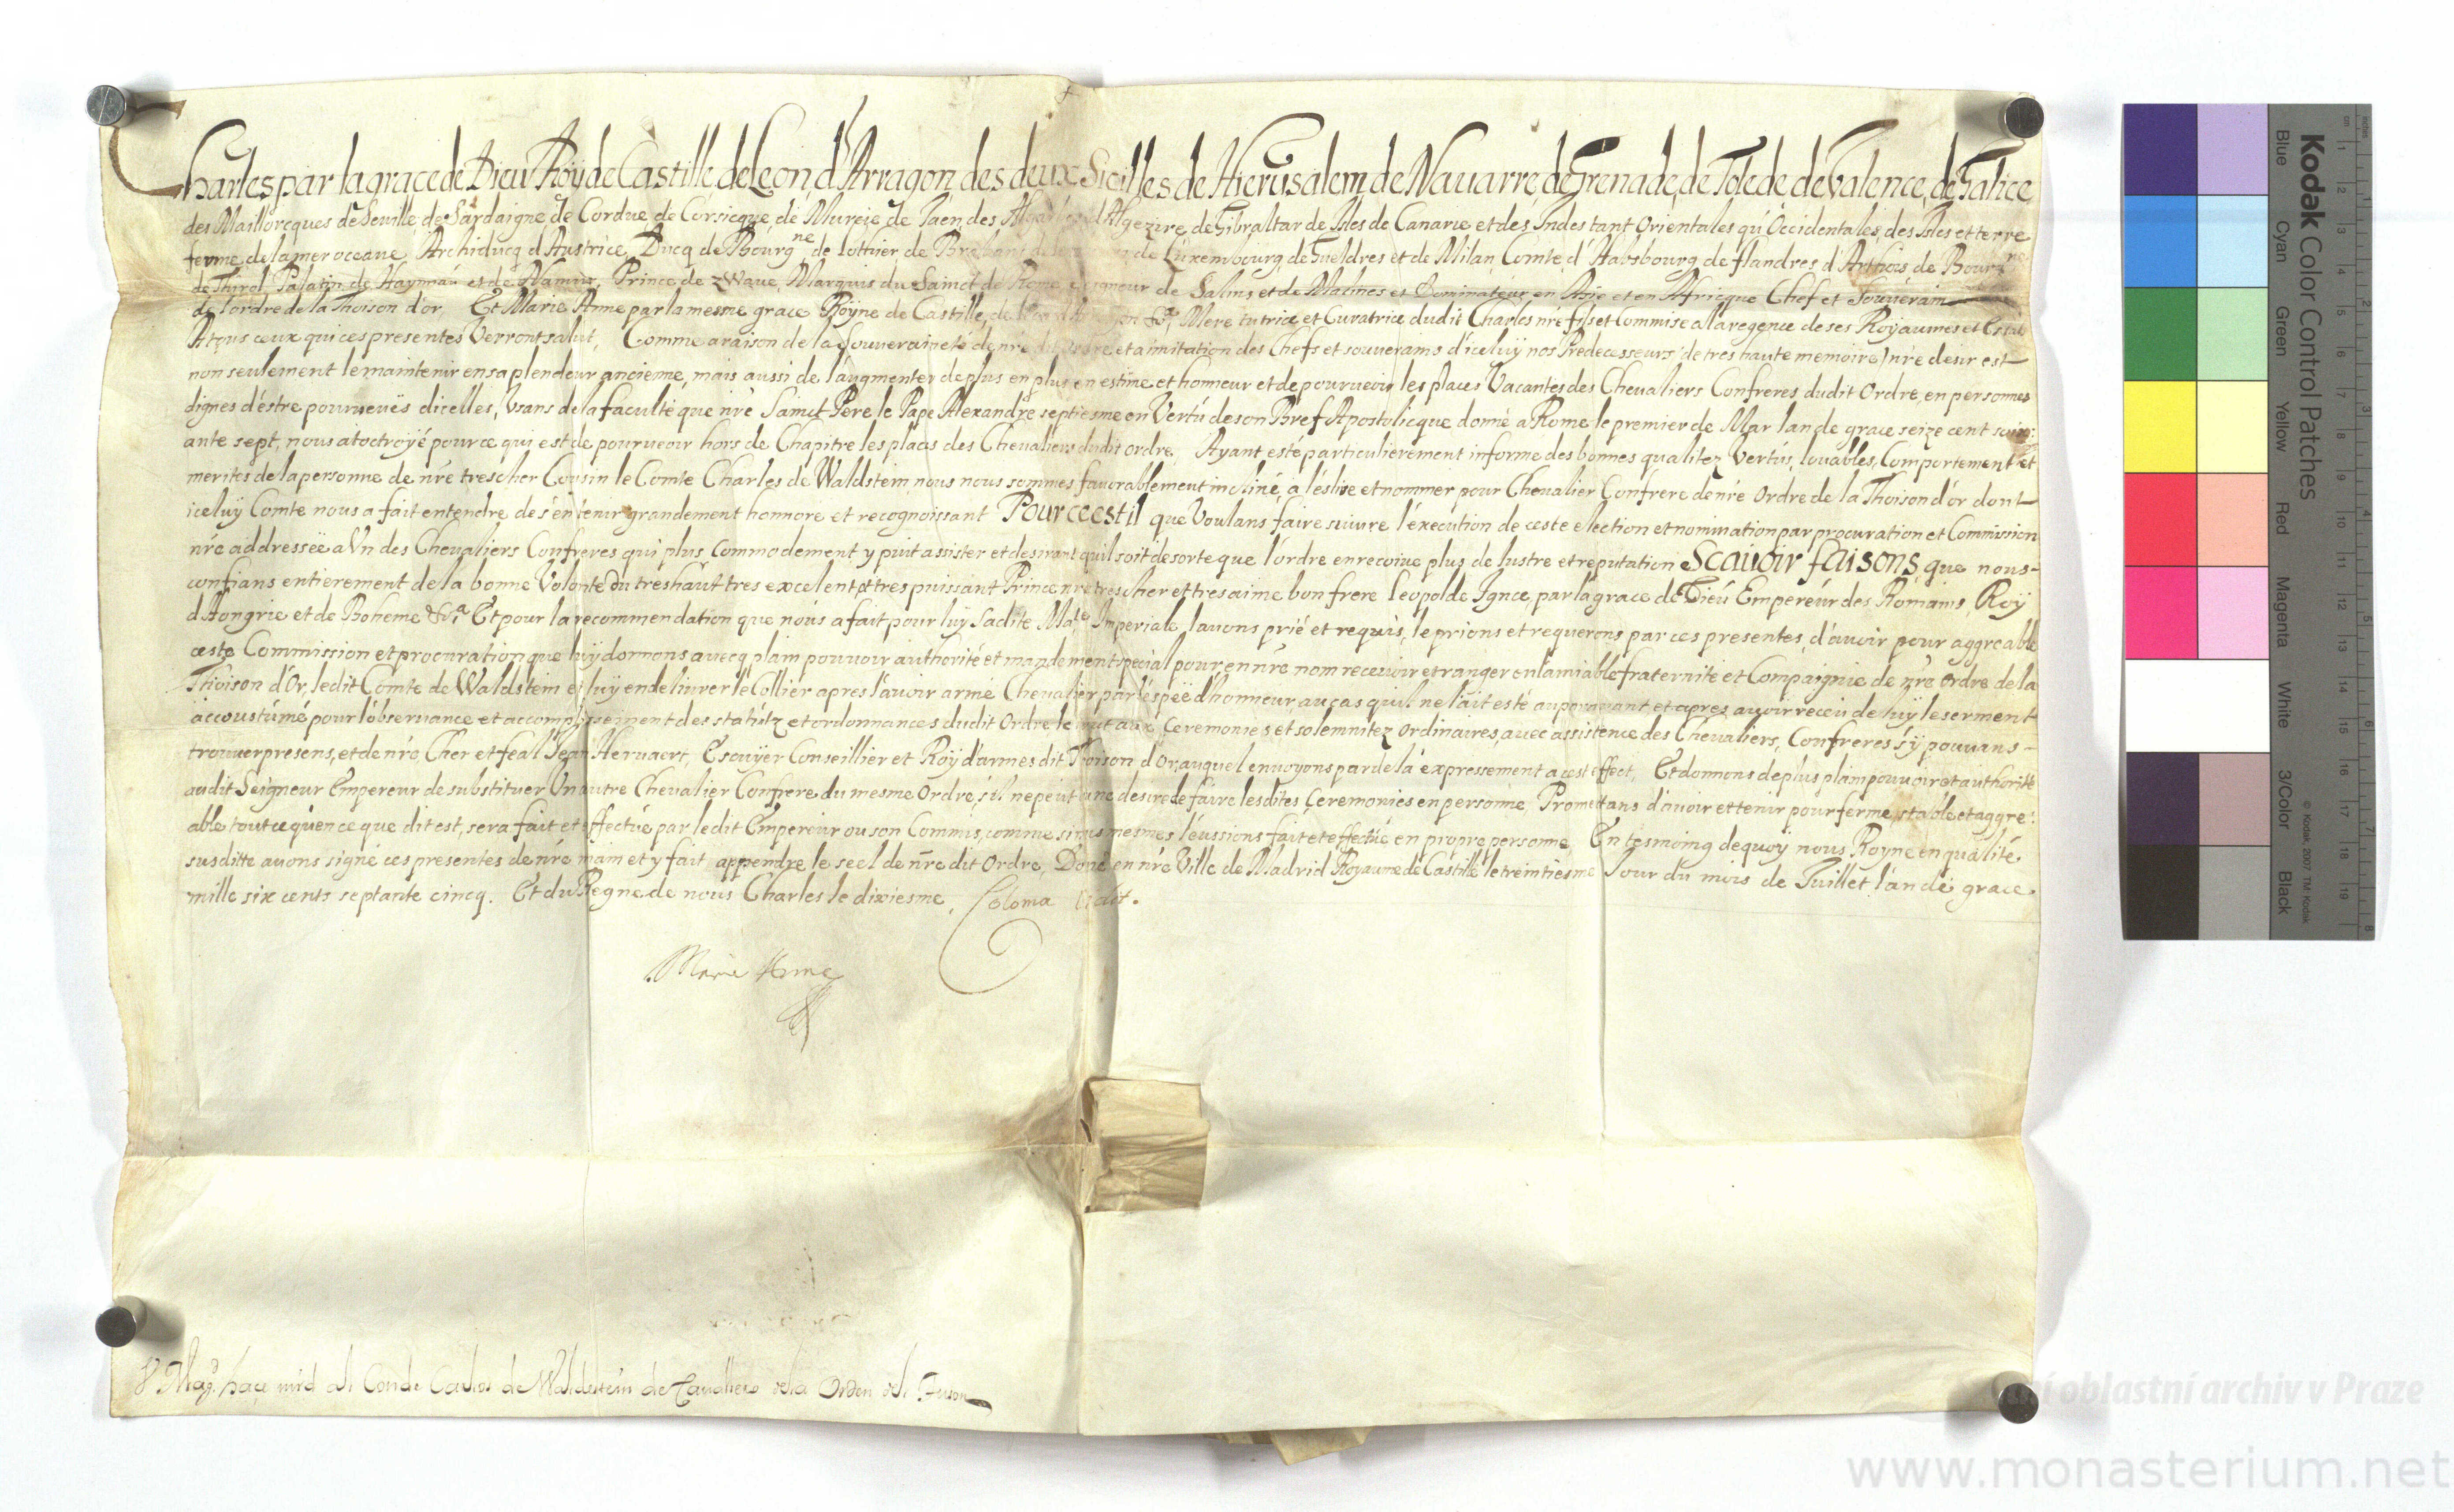 Charles par la grace de Dieu Roÿ de Castille de Leon d'Arragon des deux Sicilles de Hierusalem de Nauarre de Grenade, de Tolede de Valence, de Galice
des Maillorcques de Seuille, de Sardaigne, de Cordue de Corsicque, de Murcie de Jaen, des d'Algezire, de Gibraltar de Isles de Canarie et des Indes tant Orientales qu'Occidentales, des Isles et terre
ferme, de la mer oceane, Archiducq d'Austrice, Ducq de Bourgne, de Lottrier, de Braband de Luxembourg, de Gueldres et de Milan, Comte d'Habsbourg, de flandres d'Arthois de Bourgne
de Thirol, Palatin de Haynnau et de Namur, Prince de zwaue, Marquis du Sainct de Rome, Seigneur de Salins et de Malines et Dominateur en Asie et en Africque Chef et Souuerain
de l'ordre de la Thoison d'or, Et Marie Anne par la mesme grace Royne de Castille, de &a, Mere tutrice et Curatrice dudit Charles nre fils et Commise a la regence de ses Royaumes et
A tous ceux qui ces presentes Verront salut, Comme a raison de la Souueraineté de nre et a imitation des Chefs et souuerains d'iceluÿ nos Predecesseurs (de tres haute memoire) nre desir est
non seulement le maintenir en sa plendeur ancienne, mais aussi de l'augmenter de plus en plus en estime et honneur et de pourueoir les places Vacantes des Cheualiers Confreres dudit Ordre, en personnes
dignes d'estre pourueuës dicelles, Vsans de la faculté que nre Sainct Pere le Pape Alexandre septiesme en Vertu de son Bref Apostolicque donné a Rome le premier de Mar lan de grace seize cent soix:
ante sept, nous at octroyé pour ce qui est de pourueoir hors de Chapitre les places des Cheualiers dudit ordre, Ayant esté particulierement informe des bonnes qualitez Vertus, louables, Comportement et
merites de la personne de nre trescher Cousin le Comte Charles de Waldstein nous nous sommes fauorablement incliné a l'eslire et nommer pour Cheualier Confrere de nre Ordre de la Thoison d'or dont
iceluÿ Comte nous a fait entendre de s'en tenir grandement honnore et recognoissant Pour ce est il que Voulans faire suiure l'execution de ceste election et nomination par procuration et Commission
nre addresseë a Vn des Cheualiers Confreres qui plus Commodement y puit assister et desirant qu'il soit de sorte que l'ordre en recoiue plus de lustre et reputation Scauoir faisons que nous
confians entierement de la bonne Volonte du tres haut tres excelent et tres puissant Prince nre trescher et tres aime bon frere Leopolde Ignce par la grace de Dieu Empereur des Romains, Roÿ
d'Hongrie et de Boheme &a Et pour la recommendation que nous a fait pour luy sadite Mate Imperiale, lauons prié et requis, le prions et requerons par ces presentes, d'auoir pour aggreable
ceste Commission et procuration que luÿ donnons auecq plain pouuoir authorité et mandement special pour en nre nom receuoir et ranger en l'amiable fraternité et Compaignie de nre ordre de la
Thoison d'Or, ledit Comte de Waldstein et luÿ en deliurer le Collier apres l'auoir armé Cheualier par l'espeë d'honneur, au cas qu'il ne l'ait esté auparauant, et apres auoir receu de luÿ le serment
accoustumé pour l'obseruance et accomplissement des statutz et ordonnances dudit Ordre le tout aux Ceremonies et solemnitez ordinaires, auec assistence des Cheualiers, Confreres s'ÿ pouuans
trouuer presens, et de nre Cher et feal Jean Heruaert, Escuÿer Conseillier et Roÿ d'armes dit Thoison d'Or, auquel enuoyons par dela expressement a cest effect, Et donnons de plus plain pouuoir et authorité
audit Seigneur Empereur de substituer Vn autre Cheualier Confrere du mesme Ordre, s'il ne peut ou ne desire de faire lesdites Ceremonies en personne Promettans d'auoir et tenir pour ferme, stable et aggre:
able tout ce qu'en ce que dit est, sera fait et effectué par ledit Empereur ou son Commis, comme si nous mesmes l'eussions fait et effectué en propre personne, En tesmoing de quoy nous Royne en qualité
susditte auons signé ces presentes de nre main et y fait appendre le seel de nre dit Ordre, Doné en nre Ville de Madrid Royaume de Castille le treintiesme Jour du mois de Juillet l'an de grace
mille six cents septante cincq. Et du Regne de nous Charles le dixiesme, Coloma
Marie Anne
V Magd. hace mrd al Conde Carlos de Waldestein de Cauallero de la Orden del Tuson
Kodak Color Control Patches
Blue Cyan Green Yellow Red Magenta White 3/Color Black
© Kodak, 2007 TM: Kodak
oblastní archiv v Praze
www.monasterium.net